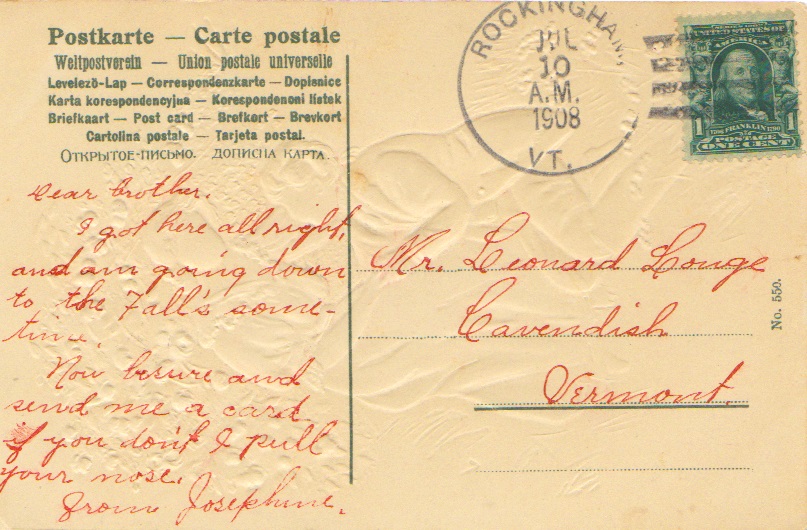 Postkarte — Carte postale
Weltpostverein — Union postale universelle
Levelező-Lap — Correspondenzkarte — Dopisnice
Karta korespondencyjna — Korespondenoni listek
Briefkaart — Post card — Brefkort — Brevkort
Cartolina postale — Tarjeta postal.
ОТКРЫТОЕ-ПИСЬМО. ДОПИСНА КАРТА.
ROCKINGHAM,
JUL
10
A.M.
1908
VT.
UNITED STATES OF
AMERICA
1 FRANKLIN 1
POSTAGE
ONE CENT
Dear brother.
I got here all right,
and am going down
to the Fall's some-
time.
Now besure and
send me a card
if you don't I pull
your nose.
From Josephine.
Mr. Leonard Longe
Cavendish
Vermont.
No. 550.